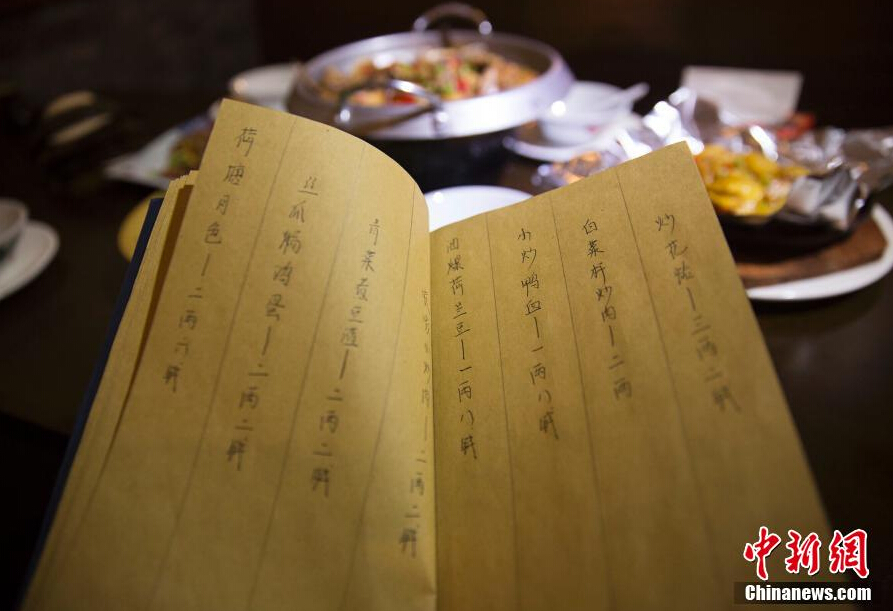 炒花蛤—三两二钱
白菜杆炒肉—二两
小炒鸭血—一两八钱
油爆荷兰豆—一两八钱
—二两二钱
青菜煮豆渣—二两二钱
丝瓜焗鸡蛋—二两二钱
荷塘月色—二两六钱
中新网
Chinanews.com